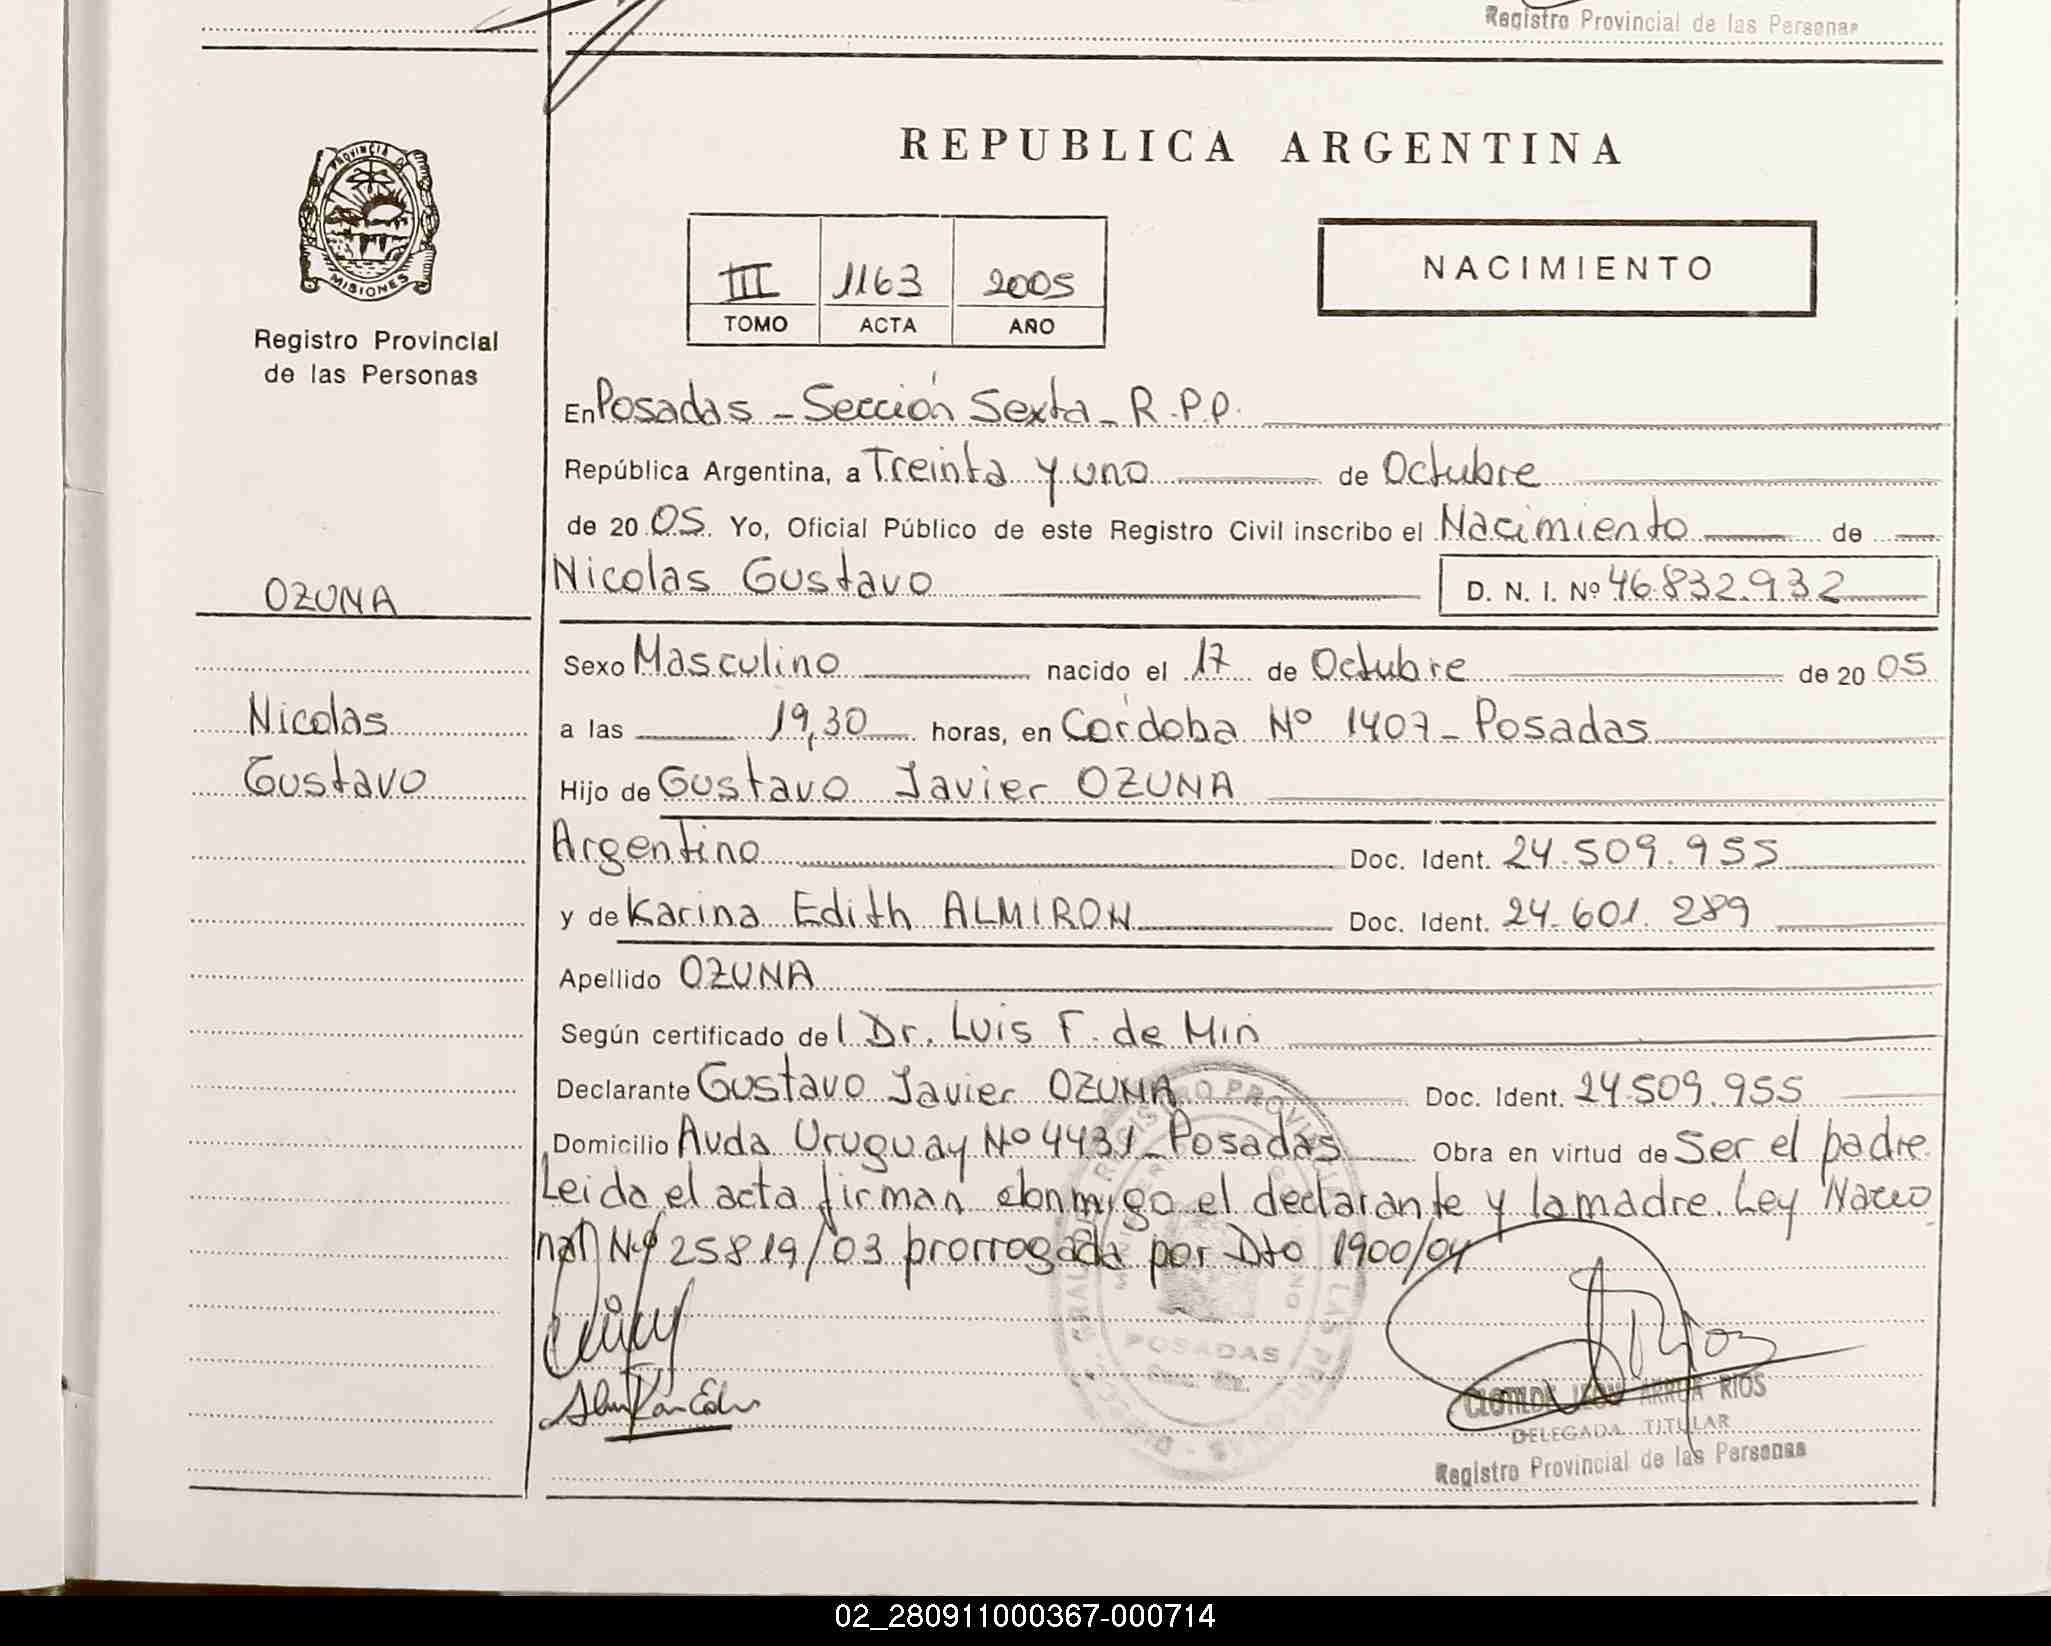 Registro Provincial de las Personas
REPUBLICA ARGENTINA
PROVINCIA D
MISIONES
Registro Provincial
de las Personas
III 1163 2005
TOMO ACTA AÑO
NACIMIENTO
En Posadas - Sección Sexta - R.P.P.
República Argentina, a Treinta y uno de Octubre
de 20 05. Yo, Oficial Público de este Registro Civil inscribo el Nacimiento de
OZUNA
Nicolas Gustavo D. N. I. Nº 46.832.932
Sexo Masculino nacido el 17 de Octubre de 20 05
Nicolas
a las 19,30 horas, en Córdoba Nº 1407 - Posadas
Gustavo
Hijo de Gustavo Javier OZUNA
Argentino Doc. Ident. 24.509.955
y de Karina Edith ALMIRON Doc. Ident. 24.601.289
Apellido OZUNA
Según certificado del Dr. Luis F. de Miń
Declarante Gustavo Javier OZUNA Doc. Ident. 24.509.955
Domicilio Avda Uruguay Nº 4431 - Posadas Obra en virtud de Ser el padre
Leida el acta firman conmigo el declarante y la madre. Ley Nacio
nal Nº 25819/03 prorrogada por Dto 1900/04
POSADAS
CLOTILDE ARRUA RIOS
DELEGADA TITULAR
Registro Provincial de las Personas
02_280911000367-000714